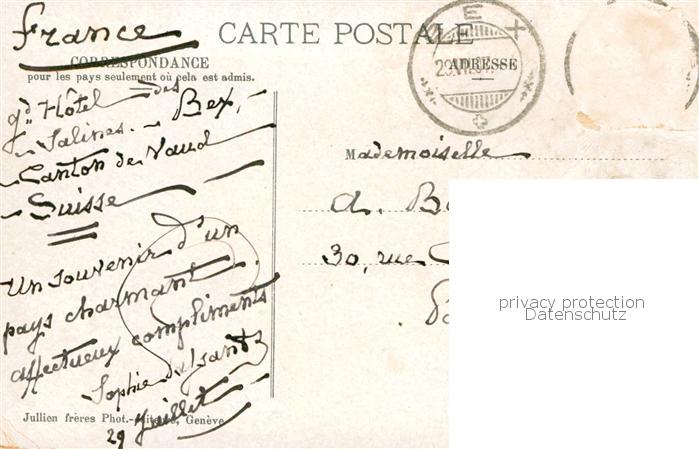 France
CARTE POSTALE
CORRESPONDANCE
pour les pays seulement où cela est admis.
ADRESSE
gd Hôtel des
Salines. - Bex, -
- Canton de Vaud
- Suisse
Un souvenir d'un
pays charmant.
affectueux compliments
Sophie
29 Juillet
Jullien frères Phot.-Editeurs, Genève
Mademoiselle
A. B
30, rue
privacy protection
Datenschutz